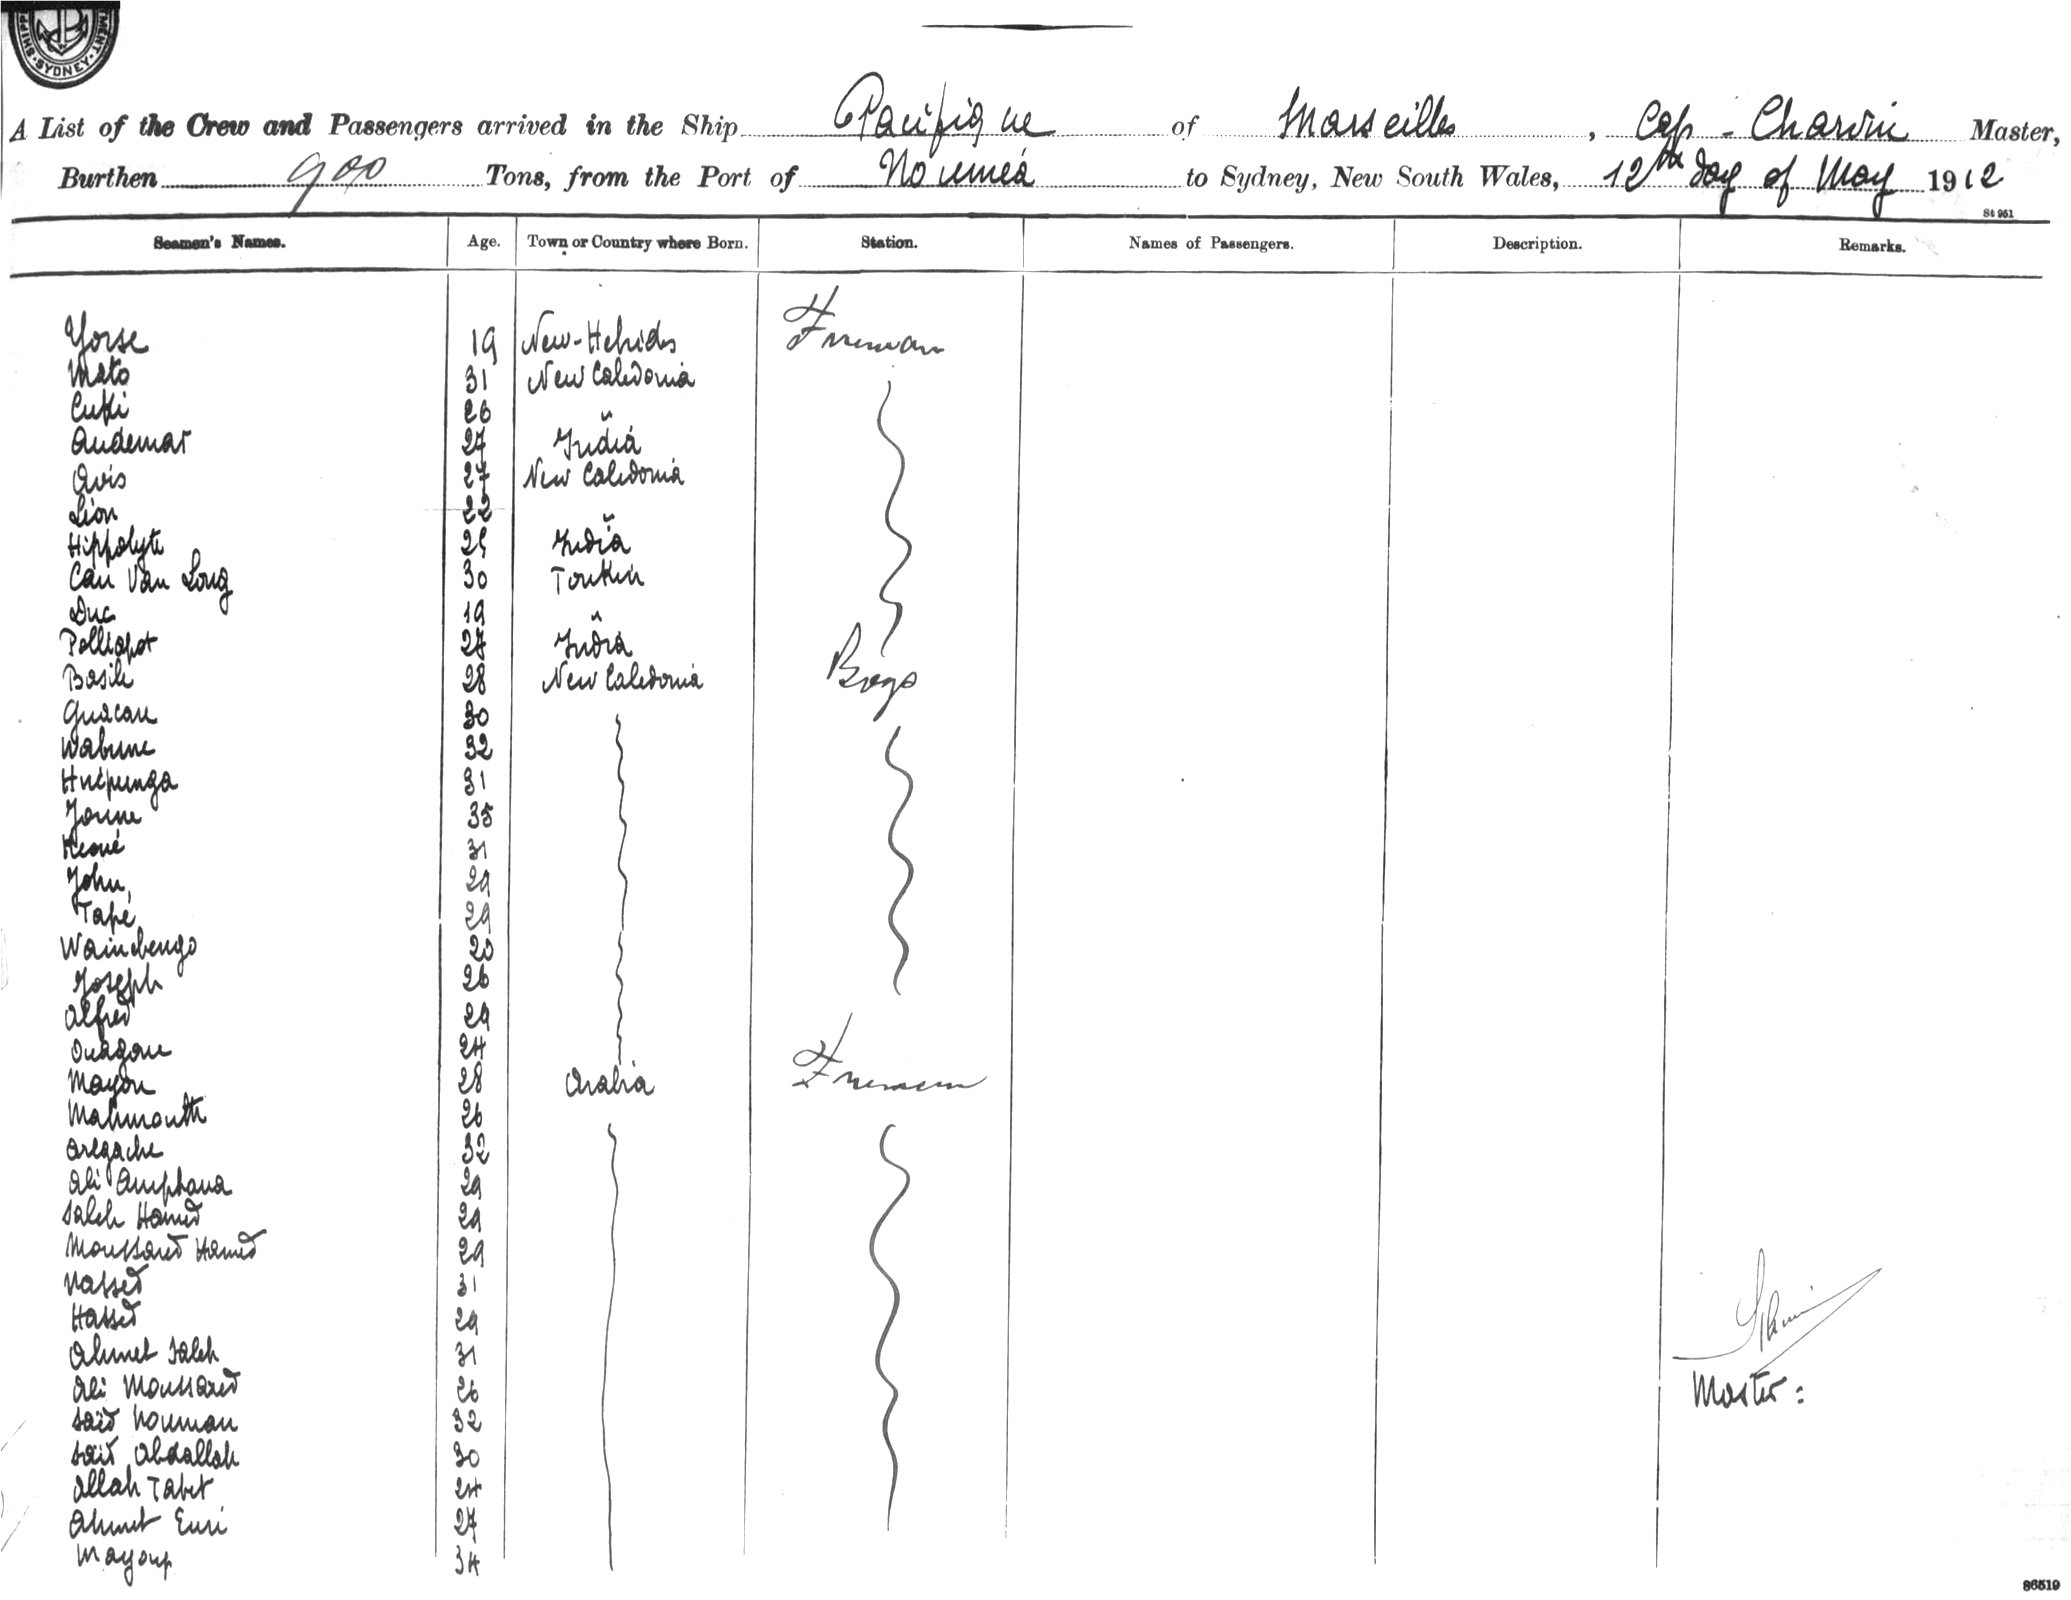 SYDNEY
A List of the Crew and Passengers arrived in the Ship Pacifique of Marseilles, Cap - Charvin Master,
Burthen 900 Tons, from the Port of Nouméa to Sydney, New South Wales, 12th day of May 1912
St 951
Seamen's Names. Age. Town or Country where Born. Station. Names of Passengers. Description. Remarks.
Yorse 19 New-Hebrides Fireman
Mato 31 New Caledonia
Cuki 26 "
Audemar 27 India
Avis 27 New Caledonia
Lion 22 "
Hippolyte 29 India
Cau Van Long 30 Tonkin
Duc 19 "
Polliapot 27 India
Basile 28 New Caledonia Boys
Guacou 30
Wabune 32
Hnépunga 31
Jonne 35
Kroué 31
John 29
Tapé 29
Wainebengo 20
Joseph 26
Alfred 29
Ouagou 24
Mayou 28 Arabia Firemen
Mahmouth 26
Aregache 32
Ali Amphana 29
Saleh Hamed 29
Moussaed Hamed 29
Nassed 31
Hassed 29
Ahmet Saleh 31
Ali Moussaed 26
Saïd Nouman 32
Saïd Abdallah 30
Allah Tabet 24
Ahmet Euri 27
Mayoup 34
Master:
86519